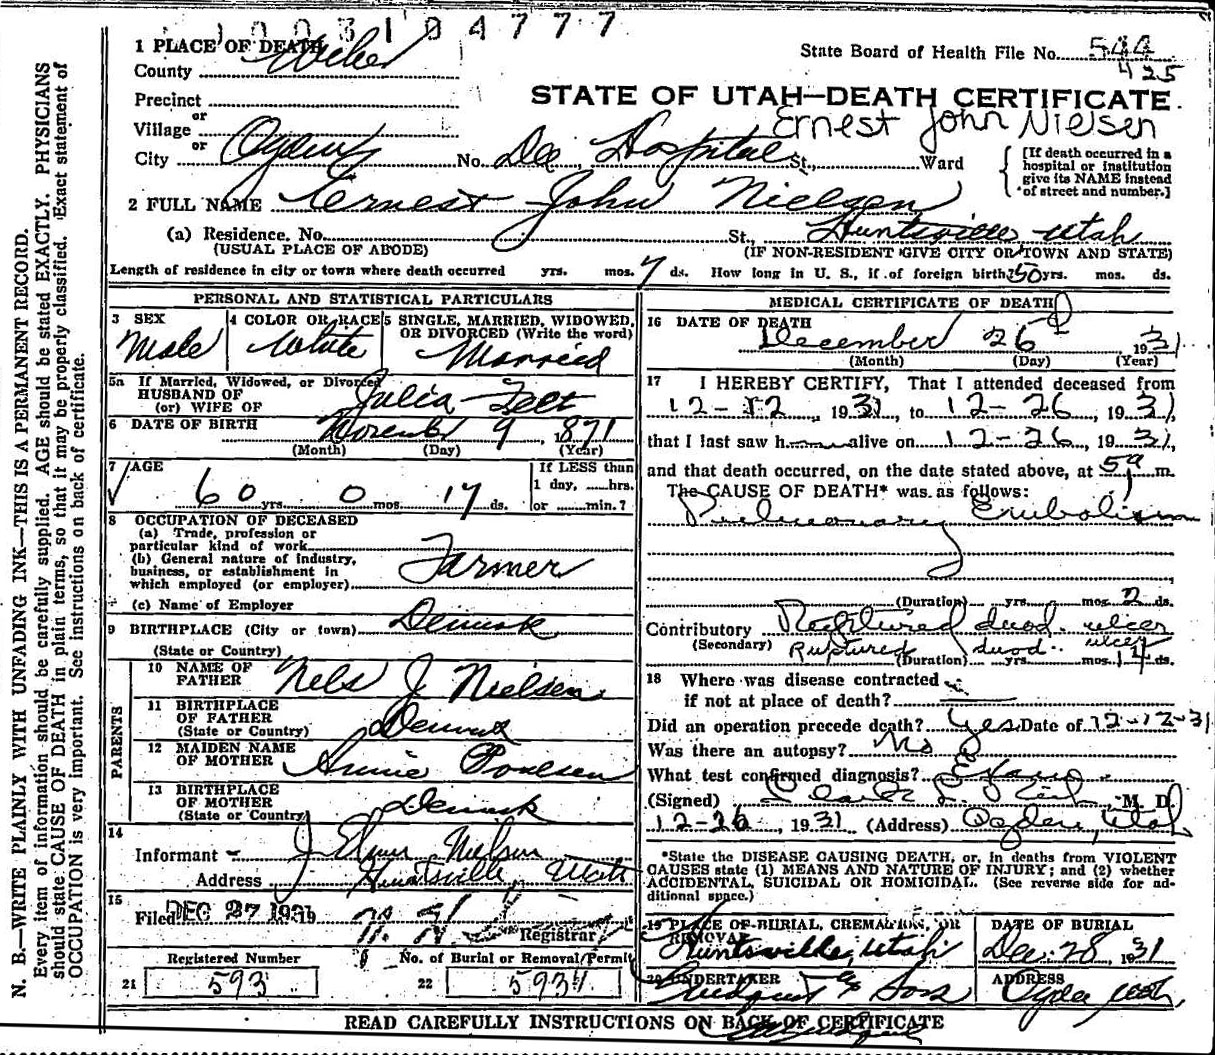 1003104777
1 PLACE OF DEATH
County Weber
State Board of Health File No. 544
425
Precinct
or
Village
or
City Ogden No. Dee Hospital St., Ward
STATE OF UTAH—DEATH CERTIFICATE
Ernest John Nielsen
[If death occurred in a
hospital or institution
give its NAME instead
of street and number.]
2 FULL NAME Ernest John Nielsen
(a) Residence, No. St., Huntsville, Utah
(USUAL PLACE OF ABODE) (IF NON-RESIDENT GIVE CITY OR TOWN AND STATE)
Length of residence in city or town where death occurred yrs. mos. 7 ds. How long in U. S., if of foreign birth? 50 yrs. mos. ds.
PERSONAL AND STATISTICAL PARTICULARS
3 SEX
Male
4 COLOR OR RACE
White
5 SINGLE, MARRIED, WIDOWED,
OR DIVORCED (Write the word)
Married
5a If Married, Widowed, or Divorced
HUSBAND OF
(or) WIFE OF
Julia Felt
6 DATE OF BIRTH November 9, 1871
(Month) (Day) (Year)
7 AGE
60 yrs. 0 mos. 17 ds.
If LESS than
1 day, hrs.
or min.?
8 OCCUPATION OF DECEASED
(a) Trade, profession or
particular kind of work
(b) General nature of industry,
business, or establishment in
which employed (or employer)
Farmer
(c) Name of Employer
9 BIRTHPLACE (City or town) Denmark
(State or Country)
PARENTS
10 NAME OF
FATHER Nels J Nielsen
11 BIRTHPLACE
OF FATHER
(State or Country) Denmark
12 MAIDEN NAME
OF MOTHER Annie Poulsen
13 BIRTHPLACE
OF MOTHER
(State or Country) Denmark
14
Informant J Elmer Nielsen
Address Huntsville, Utah
15
Filed DEC 27 1931 19
Registrar
Registered Number
21 593
No. of Burial or Removal Permit
22 5934
MEDICAL CERTIFICATE OF DEATH
16 DATE OF DEATH
December 26 1931
(Month) (Day) (Year)
17 I HEREBY CERTIFY, That I attended deceased from
12-12, 1931, to 12-26, 1931,
that I last saw h alive on 12-26, 1931,
and that death occurred, on the date stated above, at 5 a m.
The CAUSE OF DEATH* was as follows:
Pulmonary Embolism
(Duration) yrs. mos. 2 ds.
Contributory Ruptured duod. ulcer
(Secondary) Ruptured duod. ulcer
(Duration) yrs. mos. 14 ds.
18 Where was disease contracted
if not at place of death?
Did an operation precede death? Yes Date of 12-12-31
Was there an autopsy? No
What test confirmed diagnosis?
(Signed) M. D.
12-26, 1931 (Address) Ogden, Utah
*State the DISEASE CAUSING DEATH, or, in deaths from VIOLENT
CAUSES state (1) MEANS AND NATURE OF INJURY; and (2) whether
ACCIDENTAL, SUICIDAL OR HOMICIDAL. (See reverse side for ad-
ditional space.)
19 PLACE OF BURIAL, CREMATION, OR
REMOVAL
Huntsville, Utah
DATE OF BURIAL
Dec. 28, 1931
20 UNDERTAKER
Lindquist & Sons
ADDRESS
Ogden Utah
READ CAREFULLY INSTRUCTIONS ON BACK OF CERTIFICATE
N. B.—WRITE PLAINLY WITH UNFADING INK—THIS IS A PERMANENT RECORD.
Every item of information should be carefully supplied. AGE should be stated EXACTLY. PHYSICIANS
should state CAUSE OF DEATH in plain terms, so that it may be properly classified. Exact statement of
OCCUPATION is very important. See instructions on back of certificate.